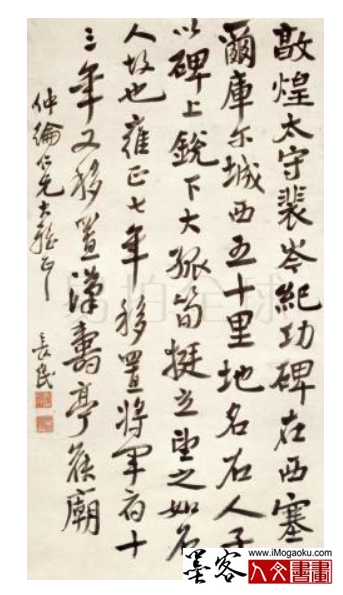 敦煌太守裴岑紀功碑在西塞
爾庫尔城西五十里地名石人子
以碑上銳下大孤筍挺立望之如石
人故也雍正七年移置將軍府十
三年又移置漢壽亭侯廟
仲綸仁兄大雅正
長民
易拍全球
墨客
www.iMogaoku.com
人文書畫